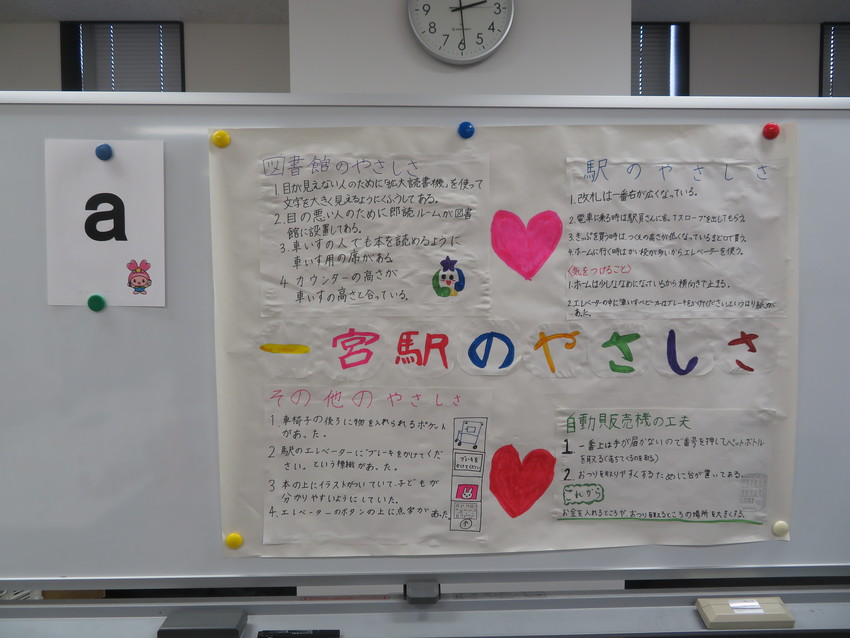 9
3
8
4
7
6
5
a
図書館のやさしさ
1.目が見えない人のために「拡大読書機」を使って
文字を大きく見えるようにくふうしてある。
2.目の悪い人のために郎読ルームが図書
館に設置してある。
3.車いすの人でも本を読めるように
車いす用の席がある
4 カウンターの高さが
車いすの高さと合っている。
駅のやさしさ
1.改札は一番右が広くなっている。
2.電車に乗る時は駅員さんに言ってスロープを出してもらう。
3.きっぷを買う時は、つくえの高さが低くなっているまど口で買う。
4.ホームに行く時はかい段が多いからエレベーターを使う。
(気をつけること)
1.ホームは少しななめになっているから横向きで止まる。
2.エレベーターの中に「車いすベビーカーはブレーキをかけてください」というはり紙が
あった。
一宮駅のやさしさ
その他のやさしさ
1 車椅子の後ろに物を入れられるポケット
があった。
2 駅のエレベーターに「ブレーキをかけてくだ
さい。という標識があった。
3 本の上にイラストがついていて、子どもが
分かりやすいようにしていた。
4.エレベーターのボタンの上に点字があった
ブレーキを
かけてください
自動販売機の工夫
1 一番上は手が届かないので番号を押してペットボトル
を取る(落ちてくるのを取る)
2.おつりを取りやすくするために台が置いてある。
これから
お金を入れるところや、おつりを取るところの場所を大きくする。